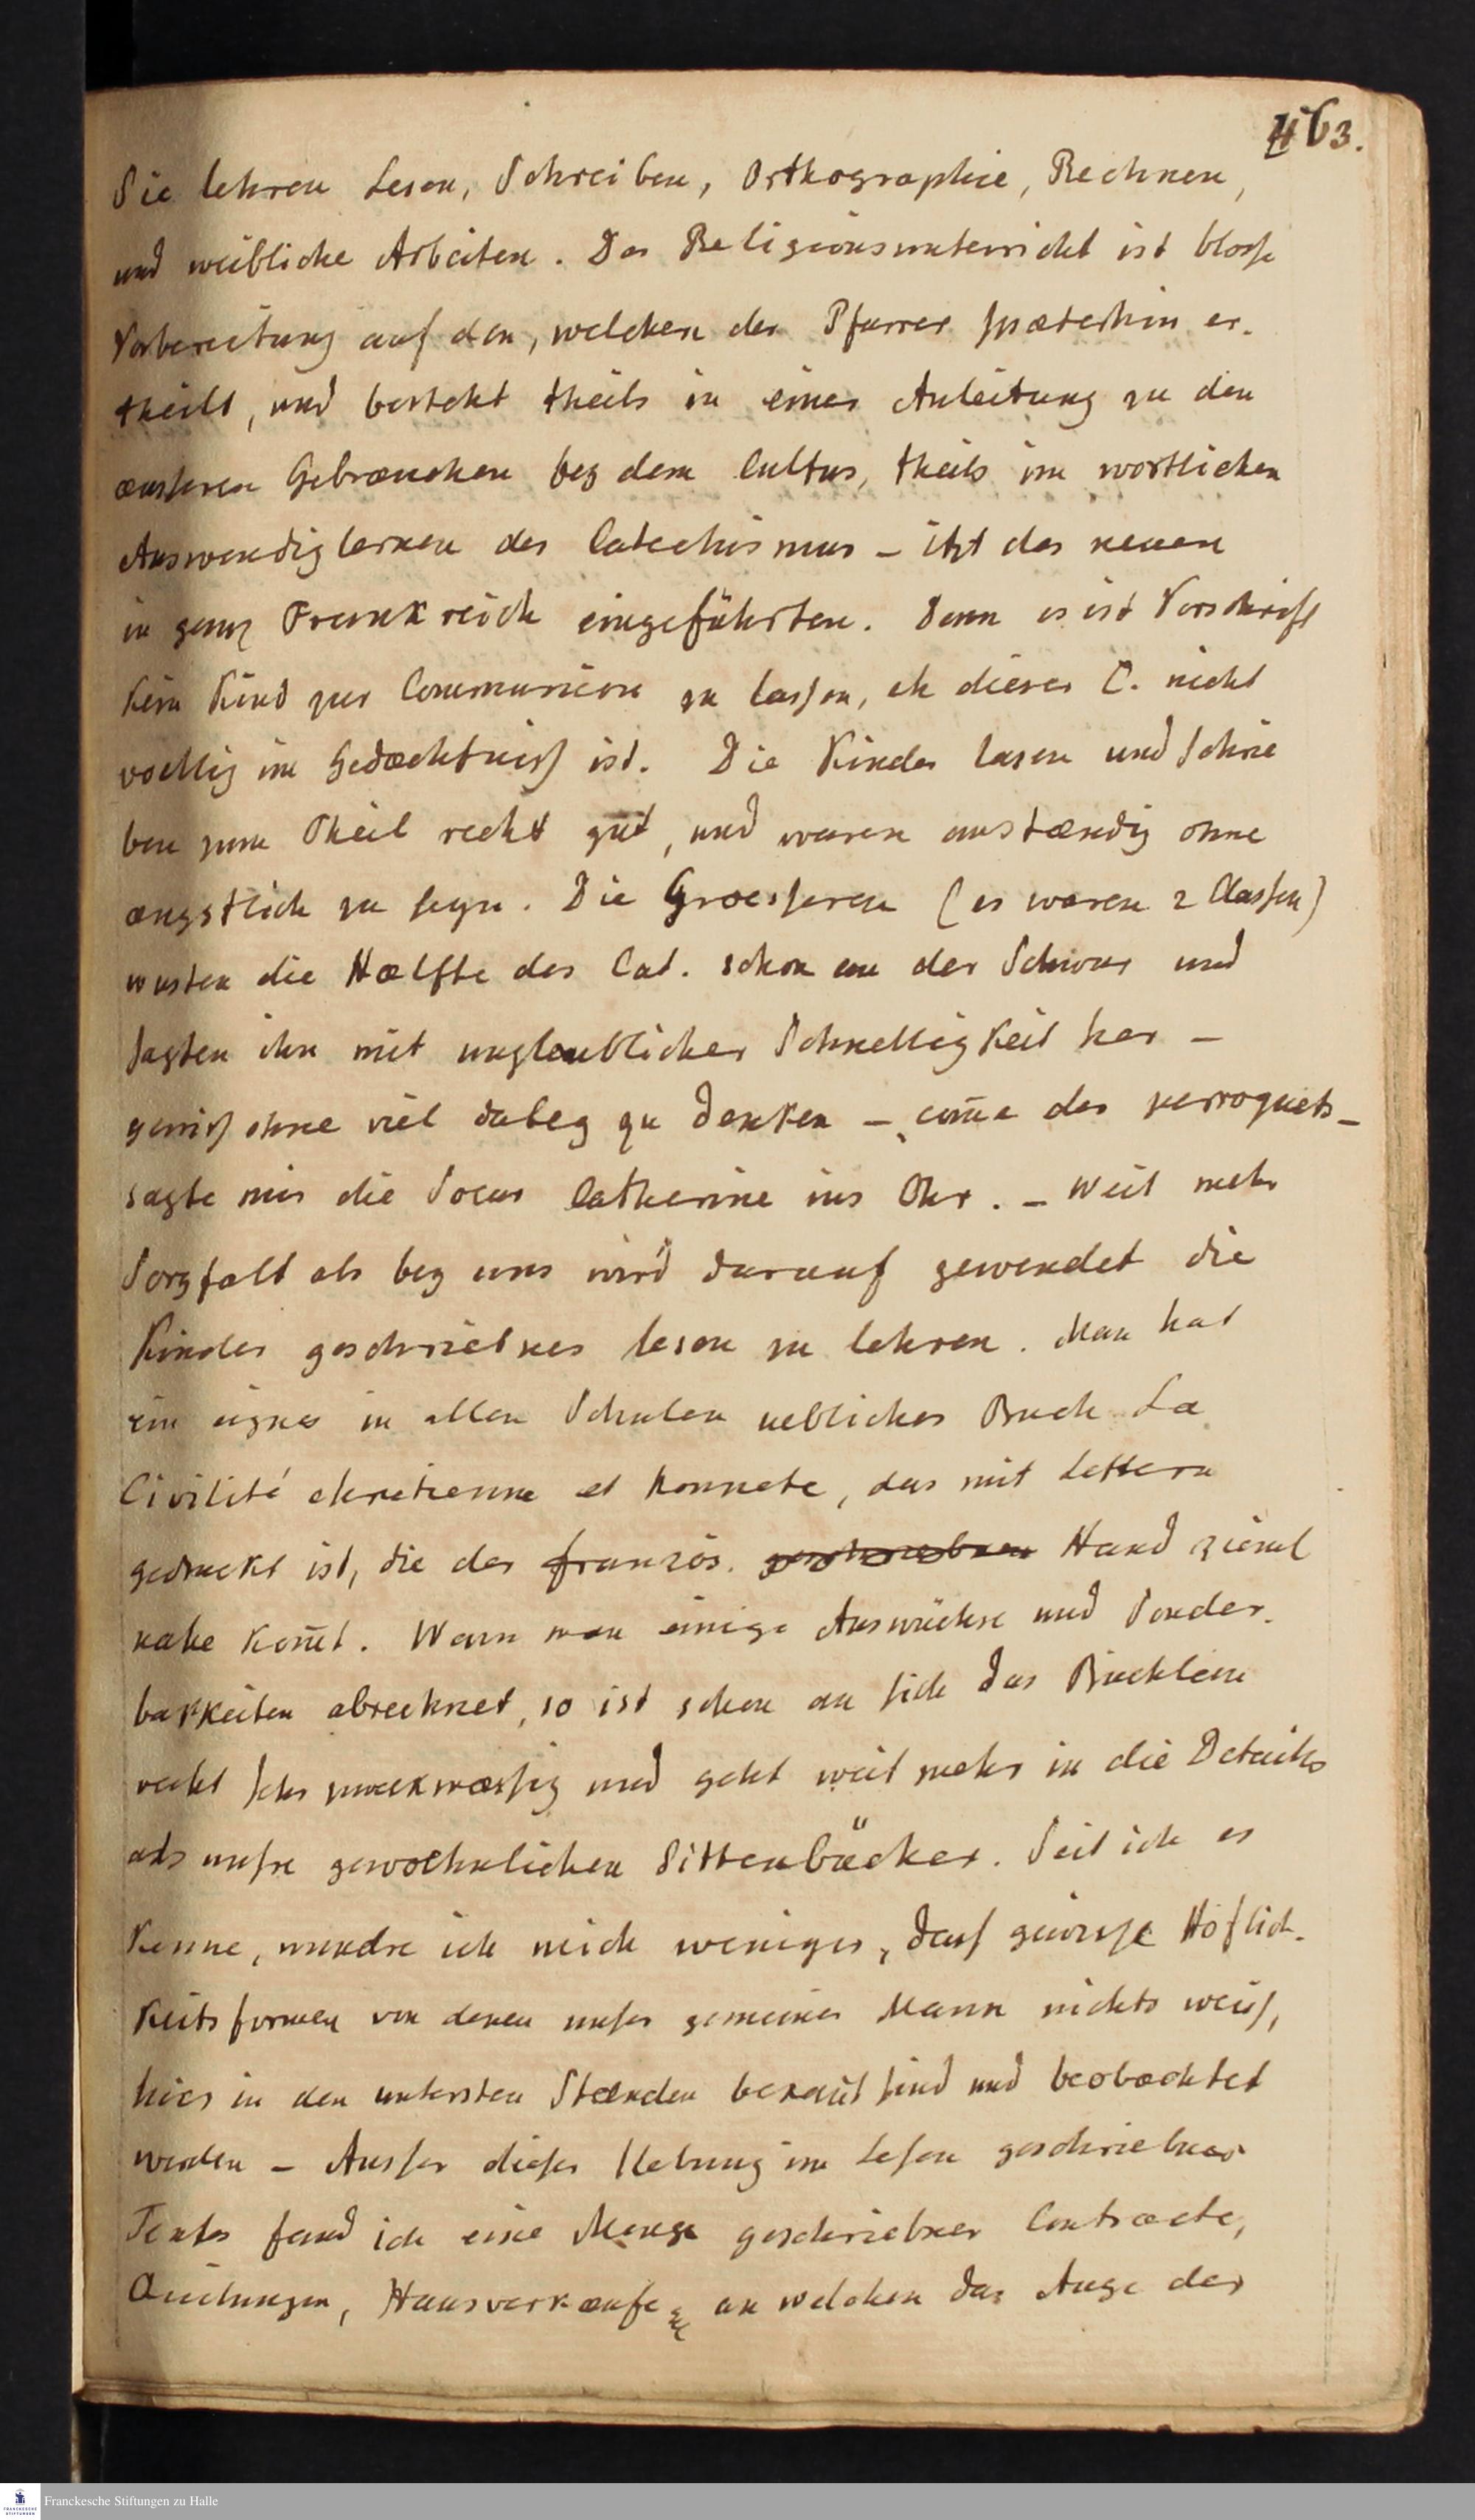 463.
Sie lehren Lesen, Schreiben, Orthographie, Rechnen,
und weibliche Arbeiten. Der Religionsunterricht ist blosse
Vorbereitung auf den, welchen der Pfarrer spæterhin er-
theilt, und besteht theils in einer Anleitung zu den
æusseren Gebræuchen bey dem Cultus, theils im wortlichen
Auswendiglernen des Catechismus – itzt des neuen
in ganz Frankreich eingeführten. Denn es ist Vorschrift
kein Kind zur Communion zu lassen, eh dieser C. nicht
voellig im Gedæchtniß ist. Die Kinder lasen und schrie
ben zum Theil recht gut, und waren anstændig ohne
ængstlich zu seyn. Die Groesseren (es waren 2 Classen)
wusten die Hælfte des Cat. schon an der Schnur und
sagten ihn mit unglaublicher Schnelligkeit her –
gewiß ohne viel dabey zu denken – com̄e des perroquets –
sagte mir die Soeur Catherine ins Ohr. – Weit mehr
Sorgfalt als bey uns wird darauf gewendet die
Kinder geschriebnes lesen zu lehren. Man hat
ein eignes in allen Schulen uebliches Buch La
Civilité chretienne et honnete, das mit Lettern
gedruckt ist, die der französ. geschriebnen Hand zieml
nahe kom̄t. Wenn man einige Auswüchse und Sonder-
barkeiten abrechnet, so ist schon an sich das Büchlein
recht sehr zweckmæssig und geht weit mehr in die Details
als unsre gewoehnlichen Sittenbücher. Seit ich es
kenne, wundre ich mich weniger, dass gewisse Höflich-
keitsformen von denen unser gemeiner Mann nichts weiss,
hier in den untersten Stænden bekan̄t sind und beobachtet
werden – Ausser dieser Uebung im Lesen geschriebner
Texte fand ich eine Menge geschriebner Contracte,
Quittungen, Hausverkæufe &c an welchen das Auge der
Franckesche Stiftungen zu Halle